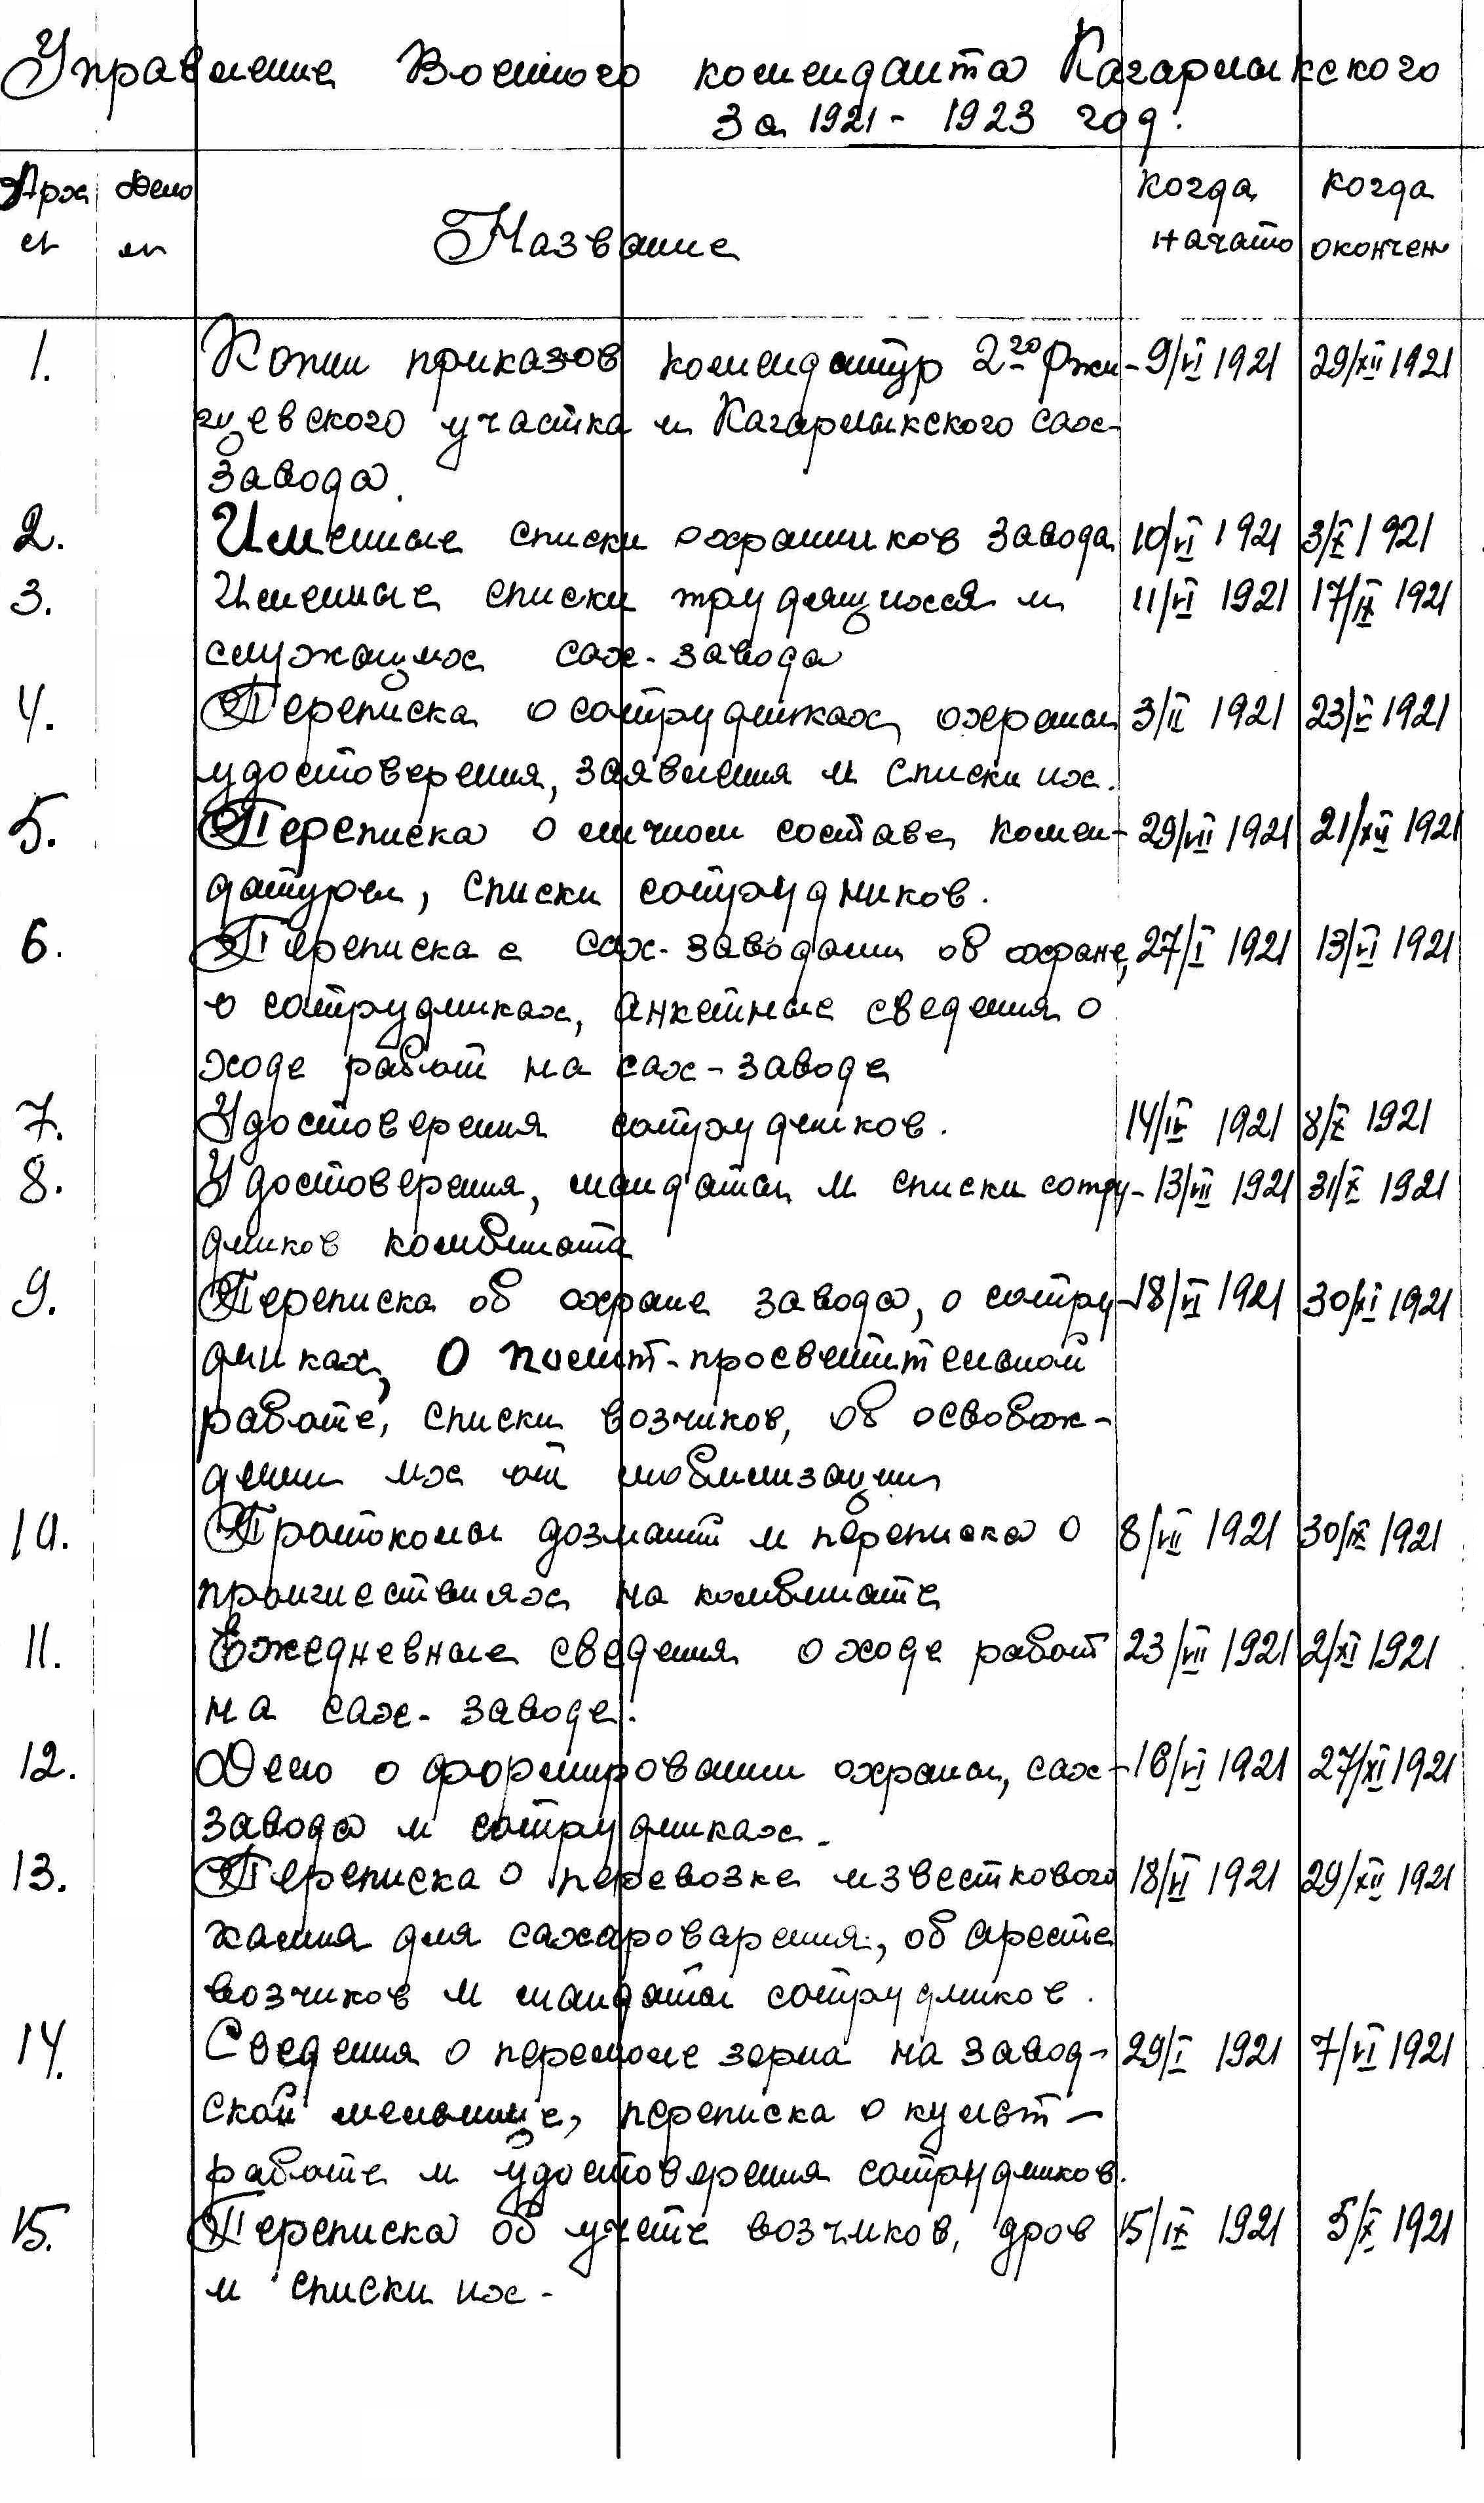 Управление Военного коменданта Кагарлыкского
За 1921 - 1923 год.
Арх Дело Название когда начато когда окончен
1. Копии приказов комендатур 2го Ржи- 9/VI 1921 29/XII 1921
щевского участка и Кагарлыкского сах-
завода.
2. Именные списки охранников завода 10/VI 1921 3/X 1921
3. Именные списки трудящихся и 11/VI 1921 17/IX 1921
служащих сах-завода
4. Переписка о сотрудниках охраны 3/II 1921 23/V 1921
удостоверения, заявления и списки их.
5. Переписка о личном составе комен- 29/VII 1921 21/XII 1921
датуры, списки сотрудников.
6. Переписка с сах-заводами об охране, 27/I 1921 13/VI 1921
о сотрудниках, анкетные сведения о
ходе работ на сах-заводе
7. Удостоверения сотрудников. 14/IV 1921 8/X 1921
8. Удостоверения, мандаты и списки сотру- 13/VII 1921 31/X 1921
дников комбината
9. Переписка об охране завода, о сотру- 18/VI 1921 30/XI 1921
дниках, о полит-просветительной
работе, списки возчиков, об освобож-
дении их от мобилизации
10. Протоколы дознаний и переписка о 8/VII 1921 30/IX 1921
происшествиях на комбинате
11. Ежедневные сведения о ходе работ 23/VII 1921 2/XI 1921
на сах-заводе.
12. Дело о формировании охраны, сах- 16/VI 1921 27/XI 1921
завода и сотрудниках.
13. Переписка о перевозке известкового 18/VI 1921 29/XII 1921
камня для сахароварения, об аресте
возчиков и мандаты сотрудников.
14. Сведения о перемоле зерна на завод- 29/I 1921 7/VI 1921
ской мельнице, переписка о культ-
работе и удостоверения сотрудников.
15. Переписка об учете возчиков, дров 15/IX 1921 5/X 1921
и списки их.